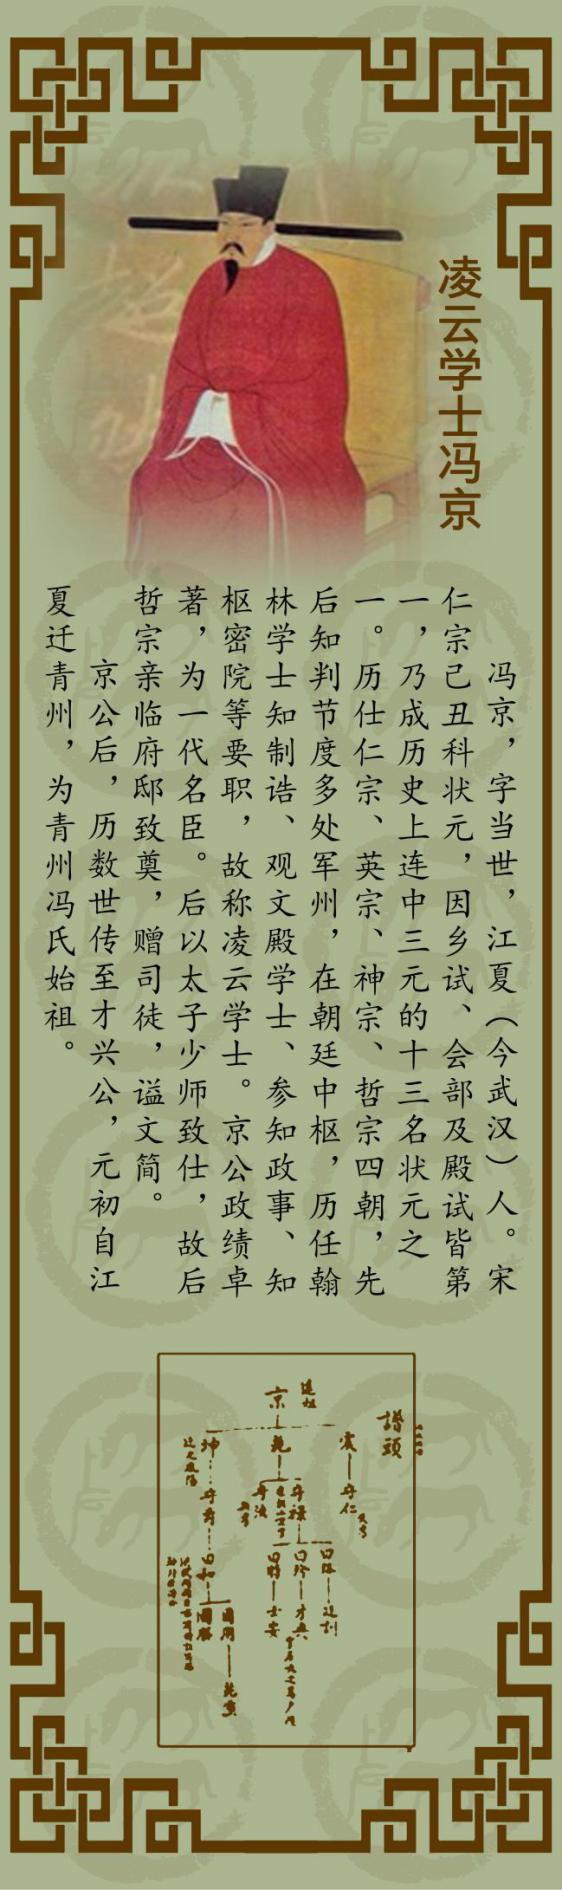 凌云学士冯京
冯京，字当世，江夏（今武汉）人。宋
仁宗己丑科状元，因乡试、会部及殿试皆第
一，乃成历史上连中三元的十三名状元之
一。历仕仁宗、英宗、神宗、哲宗四朝，先
后知判节度多处军州，在朝廷中枢，历任翰
林学士知制诰、观文殿学士、参知政事、知
枢密院等要职，故称凌云学士。京公政绩卓
著，为一代名臣。后以太子少师致仕，故后
哲宗亲临府邸致奠，赠司徒，谥文简。
京公后，历数世传至才兴公，元初自江
夏迁青州，为青州冯氏始祖。
譜頭
震
守仁
京
守祿
坤